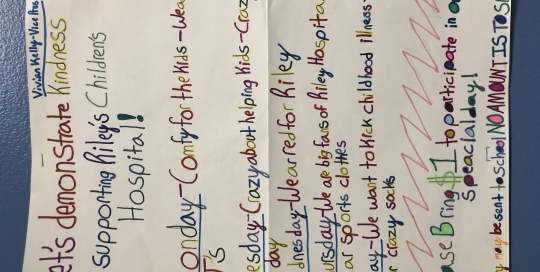 Vivian Kelly-Vice Pres
et's demonstrate Kindness
supporting Riley's Children's
Hospital!
onday-Comfy for the Kids-Wea
T's
esday-Crazy about helping Kids-Craz
day
dnesday-Wear red for Riley
ursday-We are big fans of Riley Hospita
ar sports clothes
ay-We want to kick childhood illness-
r crazy socks
ase Bring $1 to participate in o
speacial day!
y may be sent to school NO AMOUNT IS TO S